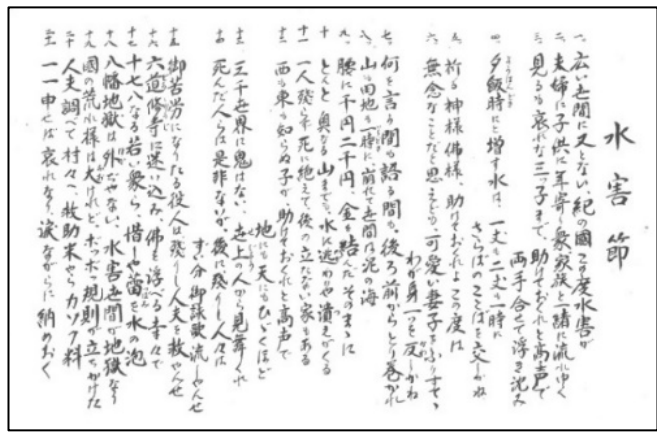 水害節
一、広い世間に又とない、紀の國この度水害が
二、夫婦に子供に年寄り衆家族と一諸に流れゆく
三、見るも哀れな三ッ子まで、助けておくれと高声で
両手合せて浮き沈み
四、夕飯時にと増す水は、一丈も二丈も一時に
さらばのことばを交しかね
五、祈る神様佛様、助けておくれよこの度は
六、無念なことだと思えども、可愛い妻子をふりすてゝ
わが身一つを反しかね
七、何を言う間も語る間も、後ろ前からとり巻かれ
八、山も田地も一時に、崩れて世間は泥の海
九、腰に千円二千円、金を結んだそのまゝに
十、とんと奥なる山までも、水に追わや潰えがくる
十一、一人残らず死に絶えて後の立たない家もある
十二、西も東も知らぬ子が、助けておくれと高声で
地にも天にもひゞくほど
十三、三千世界に鬼はない、世上の人から見舞くれ
十四、死んだ人らは是非ないが、後に残りし人々は
ずい分御詠歌流しやんせ
十五、御苦労になりたる役人は残りし人夫を救やんせ
十六、六道修寺に迷い込み、佛を浮べる寺々で
十七、十七八なる若い衆ら、惜しや 水の泡
十八、八幡地獄は外ぢゃない、水害世間が地獄なり
十九、國の荒れ様は大けれど、ボツボツ規則が立ちかけた
二十、人夫調べて村々へ、救助米やら 料
二十一、一一申せば哀れなり、涙ながらに納めおく